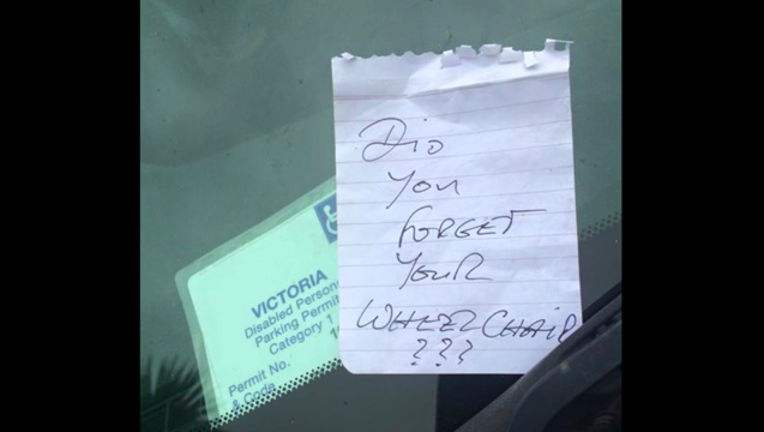 VICTORIA
Disabled Person
Parking Permit
Category 1
Permit No.
& Code
DID
YOU
FORGET
YOUR
WHEEL CHAIR
???